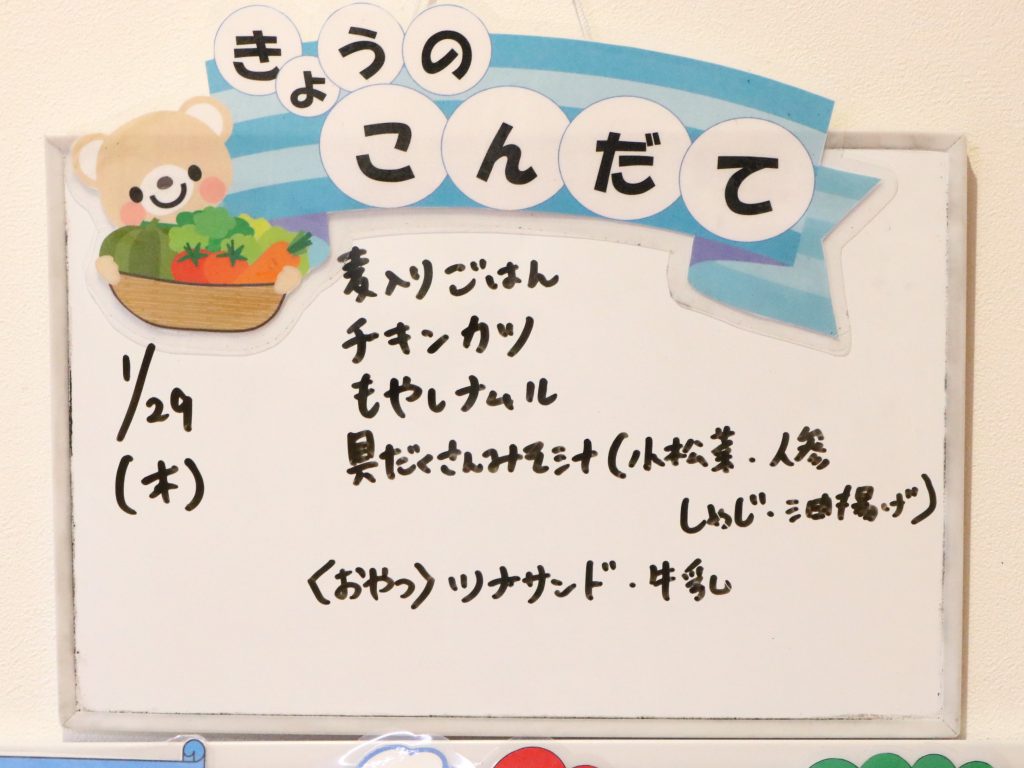 きょうの
こんだて
麦入りごはん
チキンカツ
1/29
もやしナムル
(木)
具だくさんみそ汁(小松菜・人参
しめじ・油揚げ)
〈おやつ〉ツナサンド・牛乳